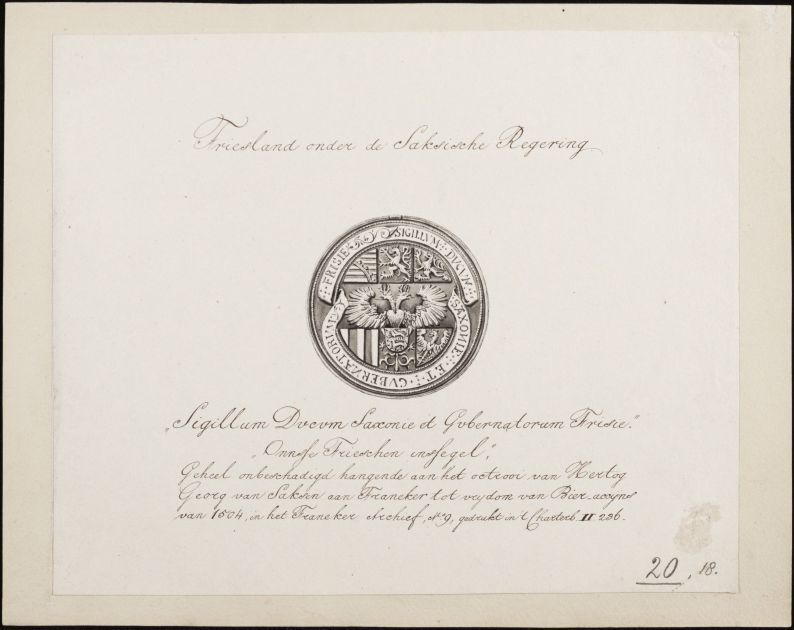 Friesland onder de Saksische Regering
SIGILLVM DVCVM SAXONIE ET GVBERNATORVM FRISIE
„Sigillum Dvcvm Saxonie et Gvbernatorum Frisie."
„Onnsse Frieschen inssegel",
Geheel onbeschadigd hangende aan het octrooi van Hertog
Georg van Saksen aan Franeker tot vrydom van Bier accyns
van 1504, in het Franeker Archief, No 9, gedrukt in 't Charterb. II 236.
20, 18.